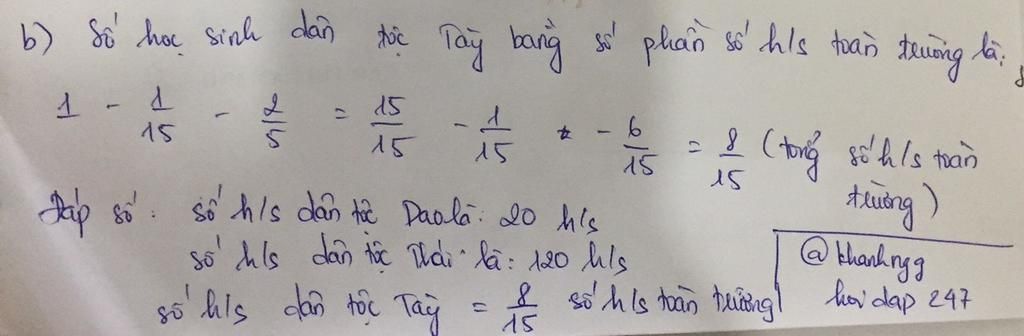 b) Số học sinh dân tộc Tày bằng số phần số h/s toàn trường là:
1 - 1/15 - 2/5 = 15/15 - 1/15 - 6/15 = 8/15 (tổng số h/s toàn trường)
Đáp số: số h/s dân tộc Dao là: 20 h/s
số h/s dân tộc Thái là: 120 h/s
số h/s dân tộc Tày = 8/15 số h/s toàn trường
@khanhngg
hoidap 247